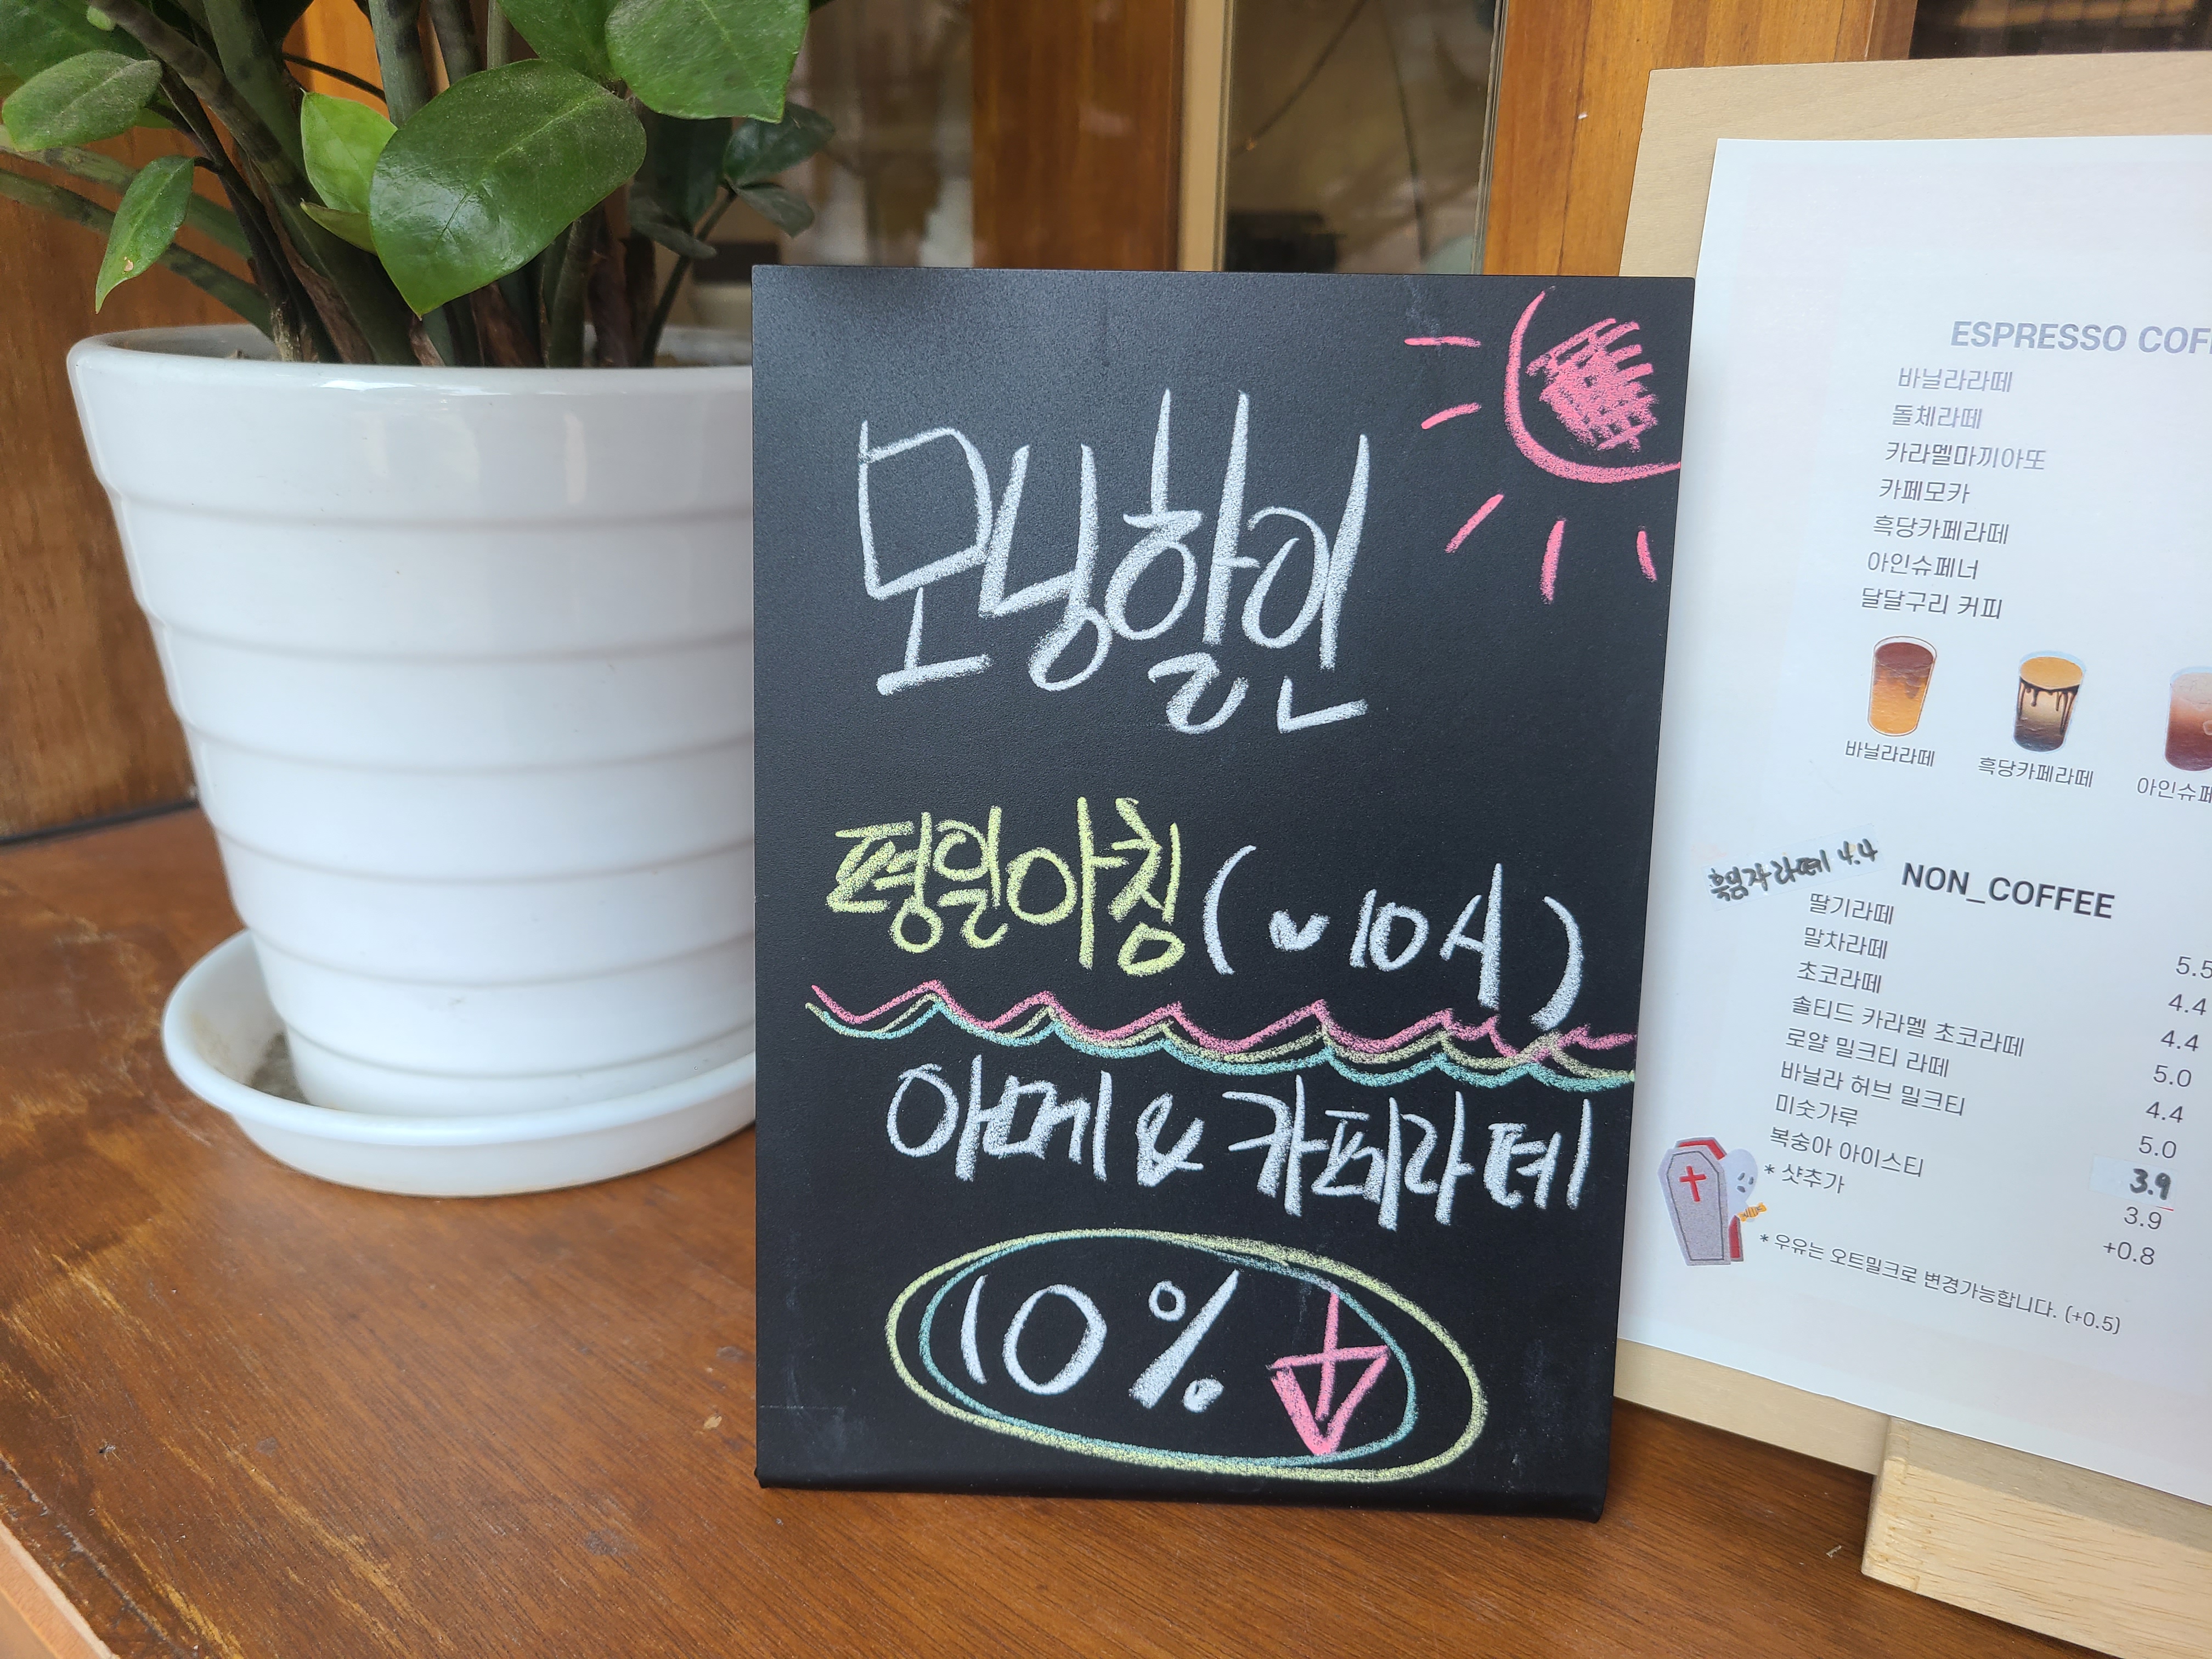 모닝할인
평일아침 (~10시)
아메 & 카페라떼
10%
ESPRESSO
바닐라라떼
돌체라떼
카라멜마끼아또
카페모카
흑당카페라떼
아인슈페너
달달구리 커피
바닐라라떼
흑당카페라떼
흑임자라떼 4.4
NON_COFFEE
딸기라떼 5.5
말차라떼 4.4
초코라떼 4.4
솔티드 카라멜 초코라떼 5.0
로얄 밀크티 라떼 4.4
바닐라 허브 밀크티 5.0
미숫가루 3.9
복숭아 아이스티 3.9
* 샷추가 +0.8
* 우유는 오트밀크로 변경가능합니다. (+0.5)